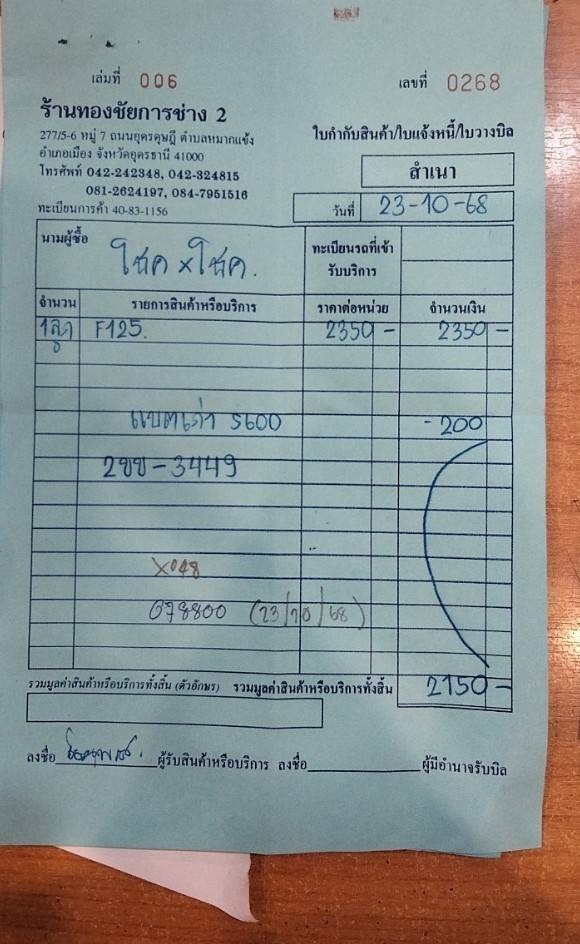 เล่มที่ 006 เลขที่ 0268
ร้านทองชัยการช่าง 2
277/5-6 หมู่ 7 ถนนอุดรดุษฎี ตำบลหมากแข้ง
อำเภอเมือง จังหวัดอุดรธานี 41000
โทรศัพท์ 042-242348, 042-324815
081-2624197, 084-7951516
ทะเบียนการค้า 40-83-1156
ใบกำกับสินค้า/ใบแจ้งหนี้/ใบวางบิล
สำเนา
วันที่ 23-10-68
นามผู้ซื้อ โชค x โชค.
ทะเบียนรถที่เข้า
รับบริการ
จำนวน รายการสินค้าหรือบริการ ราคาต่อหน่วย จำนวนเงิน
1ลูก F125. 2350 - 2350 -
แบตเก่า S600 - 200
2ขข - 3449
X048
078800 (23/10/68)
รวมมูลค่าสินค้าหรือบริการทั้งสิ้น (ตัวอักษร) รวมมูลค่าสินค้าหรือบริการทั้งสิ้น 2150 -
ลงชื่อ ผู้รับสินค้าหรือบริการ ลงชื่อ ผู้มีอำนาจรับบิล